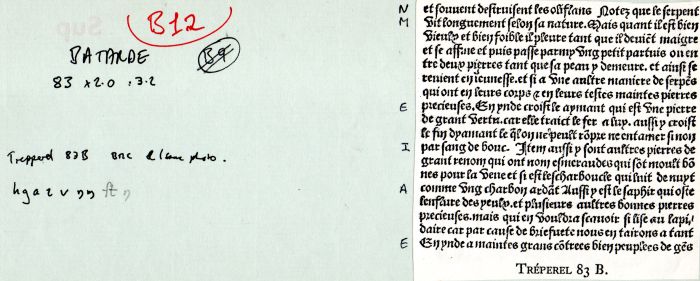 B12
BATARDE
B9
83 x 2.0 : 3.2
Trepperel 83B BNC
h g a z v
N
M
E
I
A
E
et souuent destruisent les olifans Notez que le serpent
Vit longuement selon sa nature. Mais quant il est bien
Vieulx et bien foible il pleure tant que il deuiēt maigre
et se affine et puis passe parmy vng petit partuis ou en
tre deux pierres tant que sa peau y demeure. et ainsi se
reuient en ieunesse. et si a vne aultre maniere de serpēs
qui ont en leurs corps ⁊ en leurs testes maintes pierres
precieuses. En ynde croist le aymant qui est vne pierre
de grant Vertu. car elle traict le fer a luy. aussi y croist
le fin dyamant le q̄l on ne peult rōpre ne entamer si non
par sang de bouc. Item aussi y sont aultres pierres de
grant renom qui ont nom esmeraudes qui sōt moult bō
nes pour la Veue et si est lescharboucle qui luit de nuyt
comme vng charbon ardāt Aussi y est le saphir qui oste
lenflure des yeulx. et plusieurs aultres bonnes pierres
precieuses. mais qui en Vouldra scauoir si lise au lapi/
daire car par cause de briefuete nous en tairons a tant
En ynde a maintes grans cōtrees bien peuplees de gēs
TRÉPEREL 83 B.